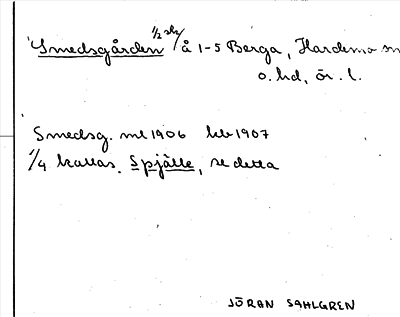 Smedsgården 1/2 sk/ å 1-5 Berga, Hardemo sn
o. hd, ör. l.
Smedsg. mt 1906 hb 1907
1/4 kallas. Spjälle, se detta
JÖRAN SAHLGREN